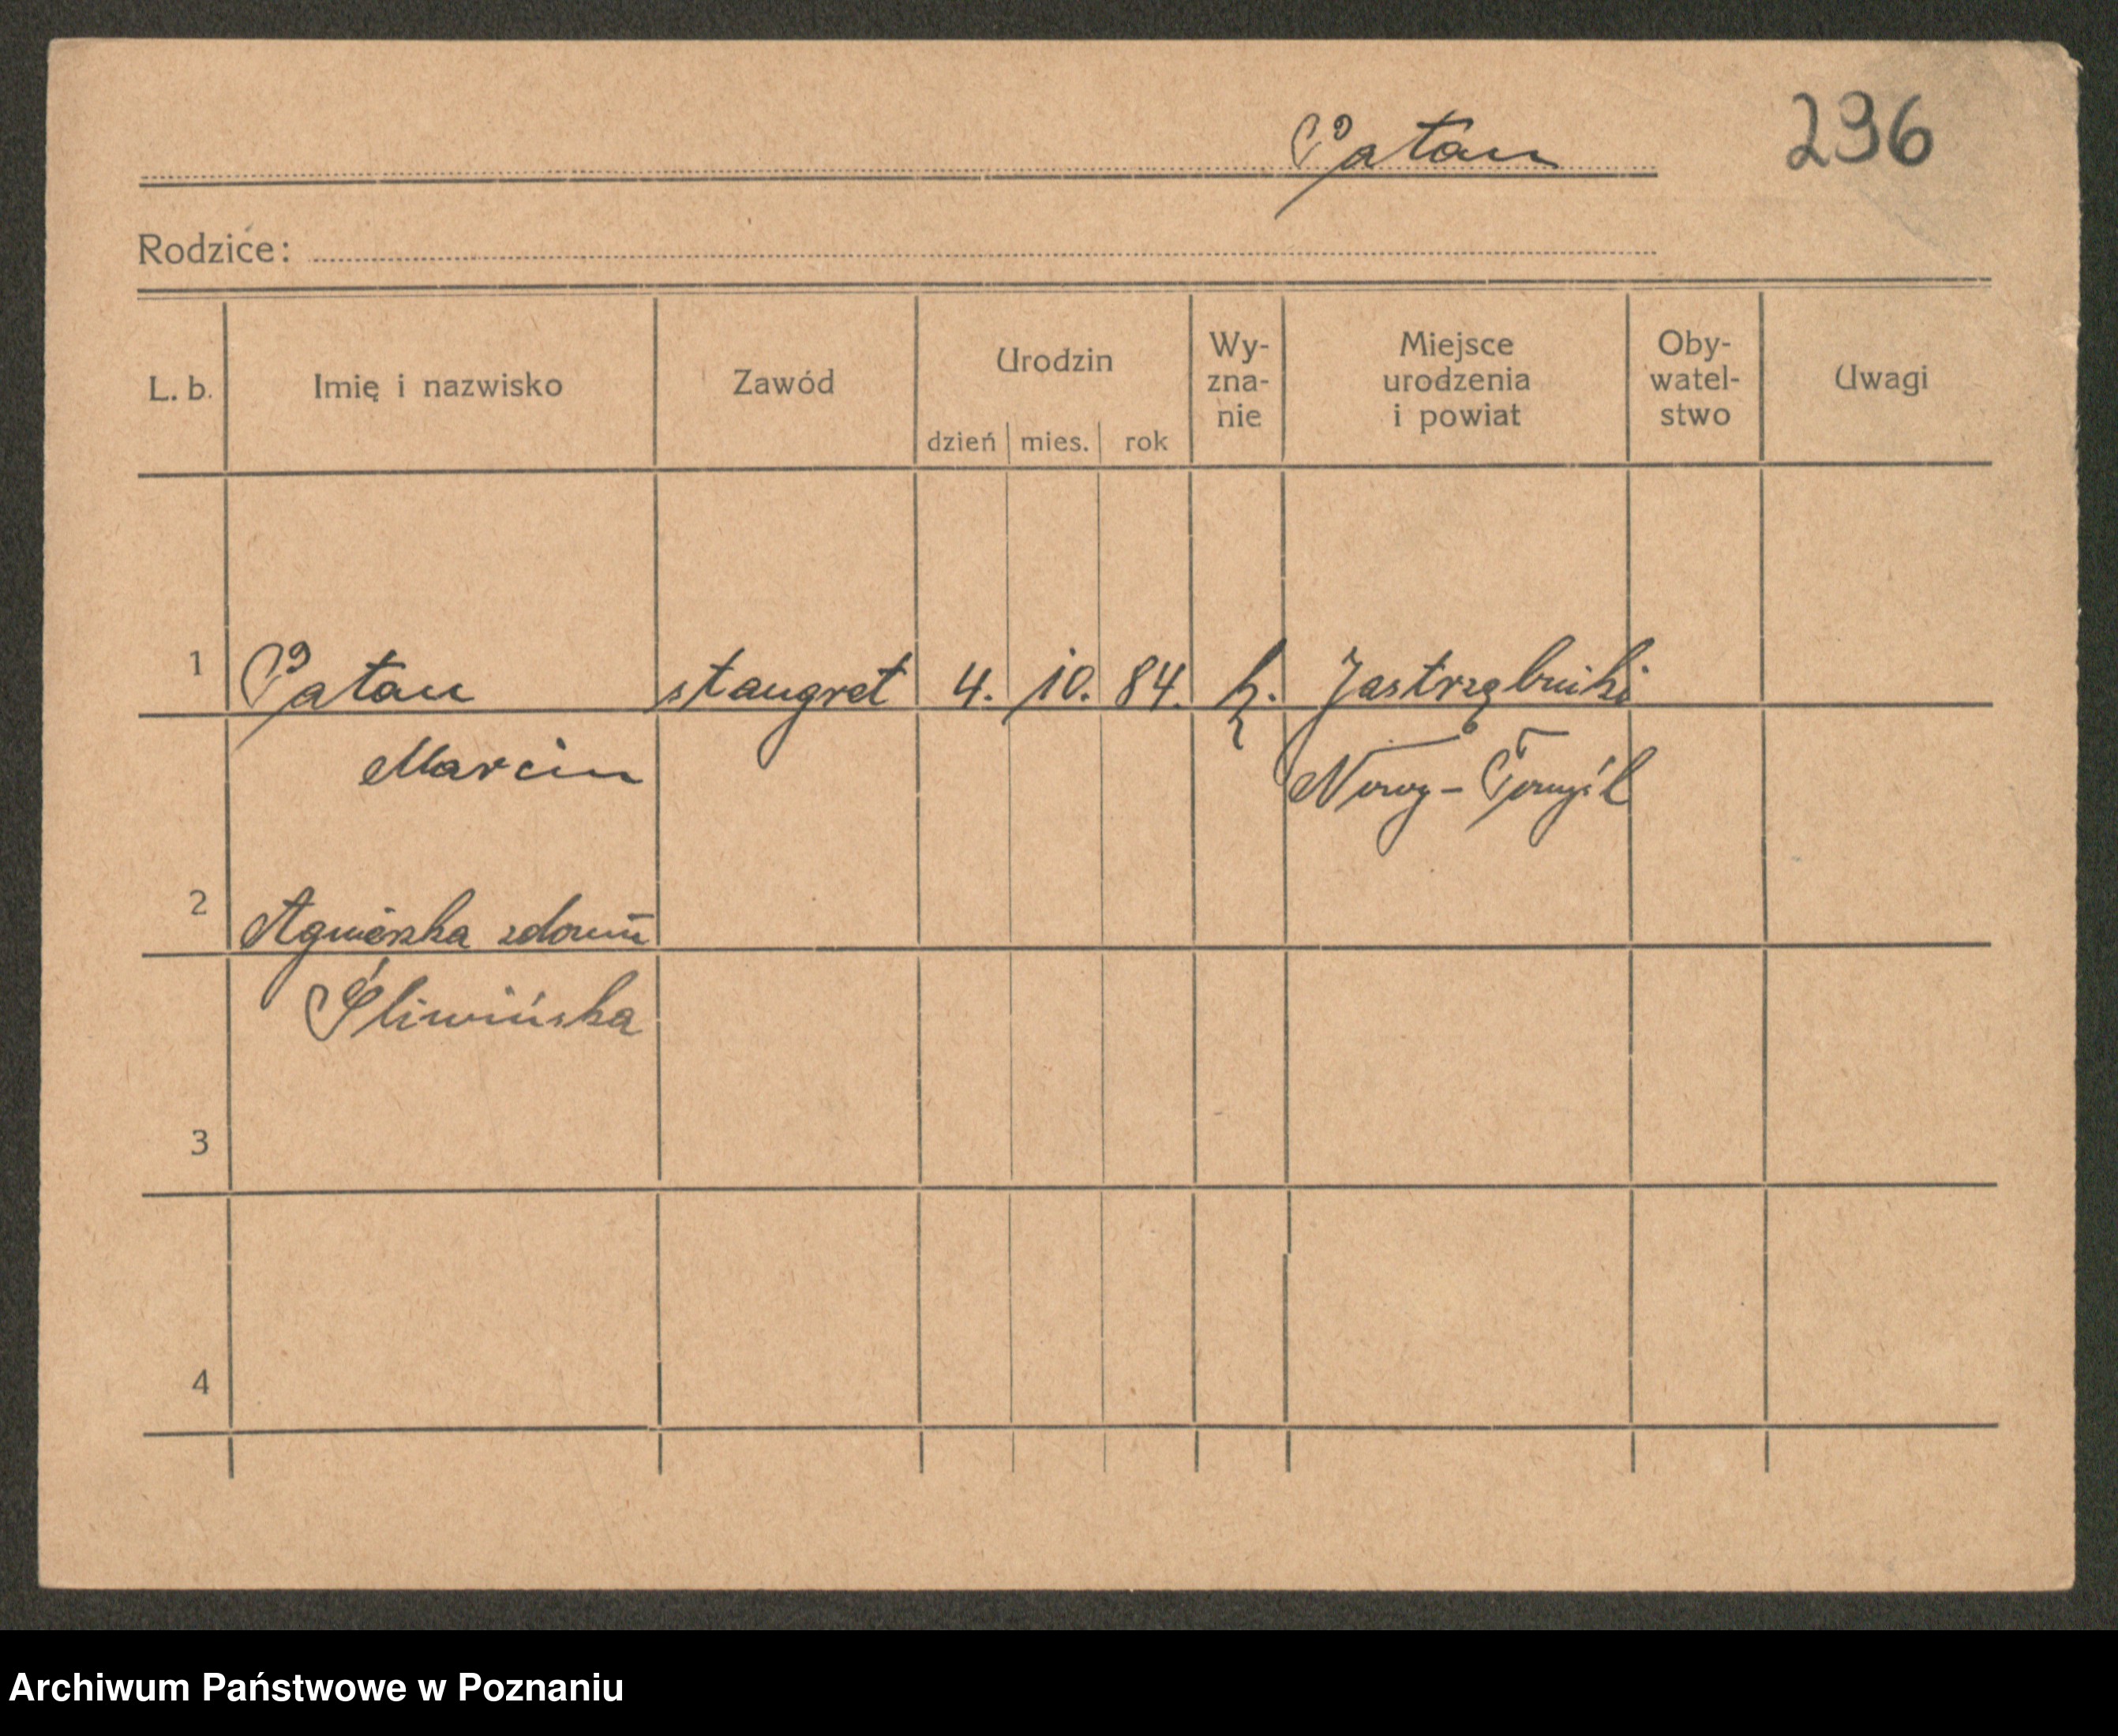 Patan
296
Rodzice:
L. b. Imię i nazwisko Zawód Urodzin dzień mies. rok Wy-zna-nie Miejsce urodzenia i powiat Oby-watel-stwo Uwagi
1 Patan stangret 4. 10. 84. k. Jastrzębniki
Marcin Nowy-Tomyśl
2 Agnieszka zdomu
Śliwińska
3
4
Archiwum Państwowe w Poznaniu